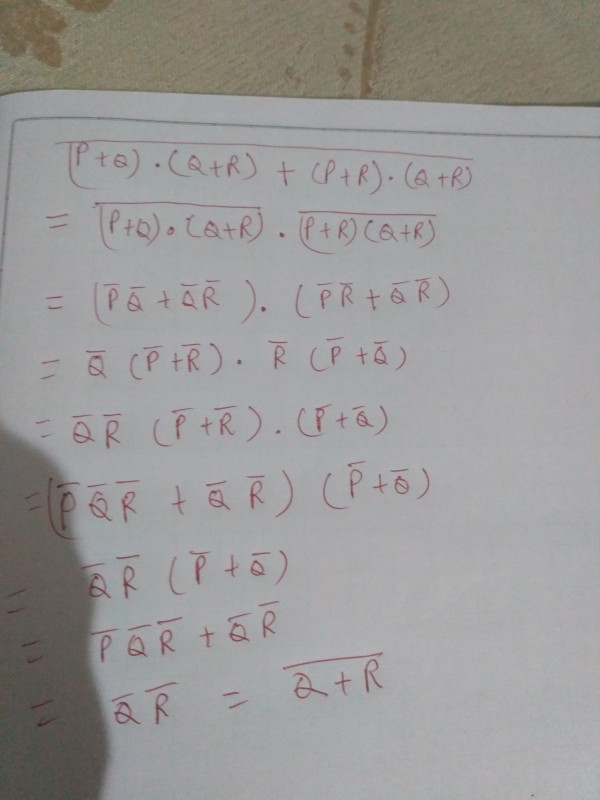 \overline{(P+Q)·(Q+R) + (P+R)·(Q+R)}
= \overline{(P+Q)·(Q+R)} · \overline{(P+R)(Q+R)}
= (P̅Q̅ + Q̅R̅) · (P̅R̅ + Q̅R̅)
= Q̅ (P̅+R̅) · R̅ (P̅+Q̅)
= Q̅R̅ (P̅+R̅) · (P̅+Q̅)
= (P̅Q̅R̅ + Q̅R̅) (P̅+Q̅)
= Q̅R̅ (P̅+Q̅)
= P̅Q̅R̅ + Q̅R̅
= Q̅R̅ = \overline{Q+R}